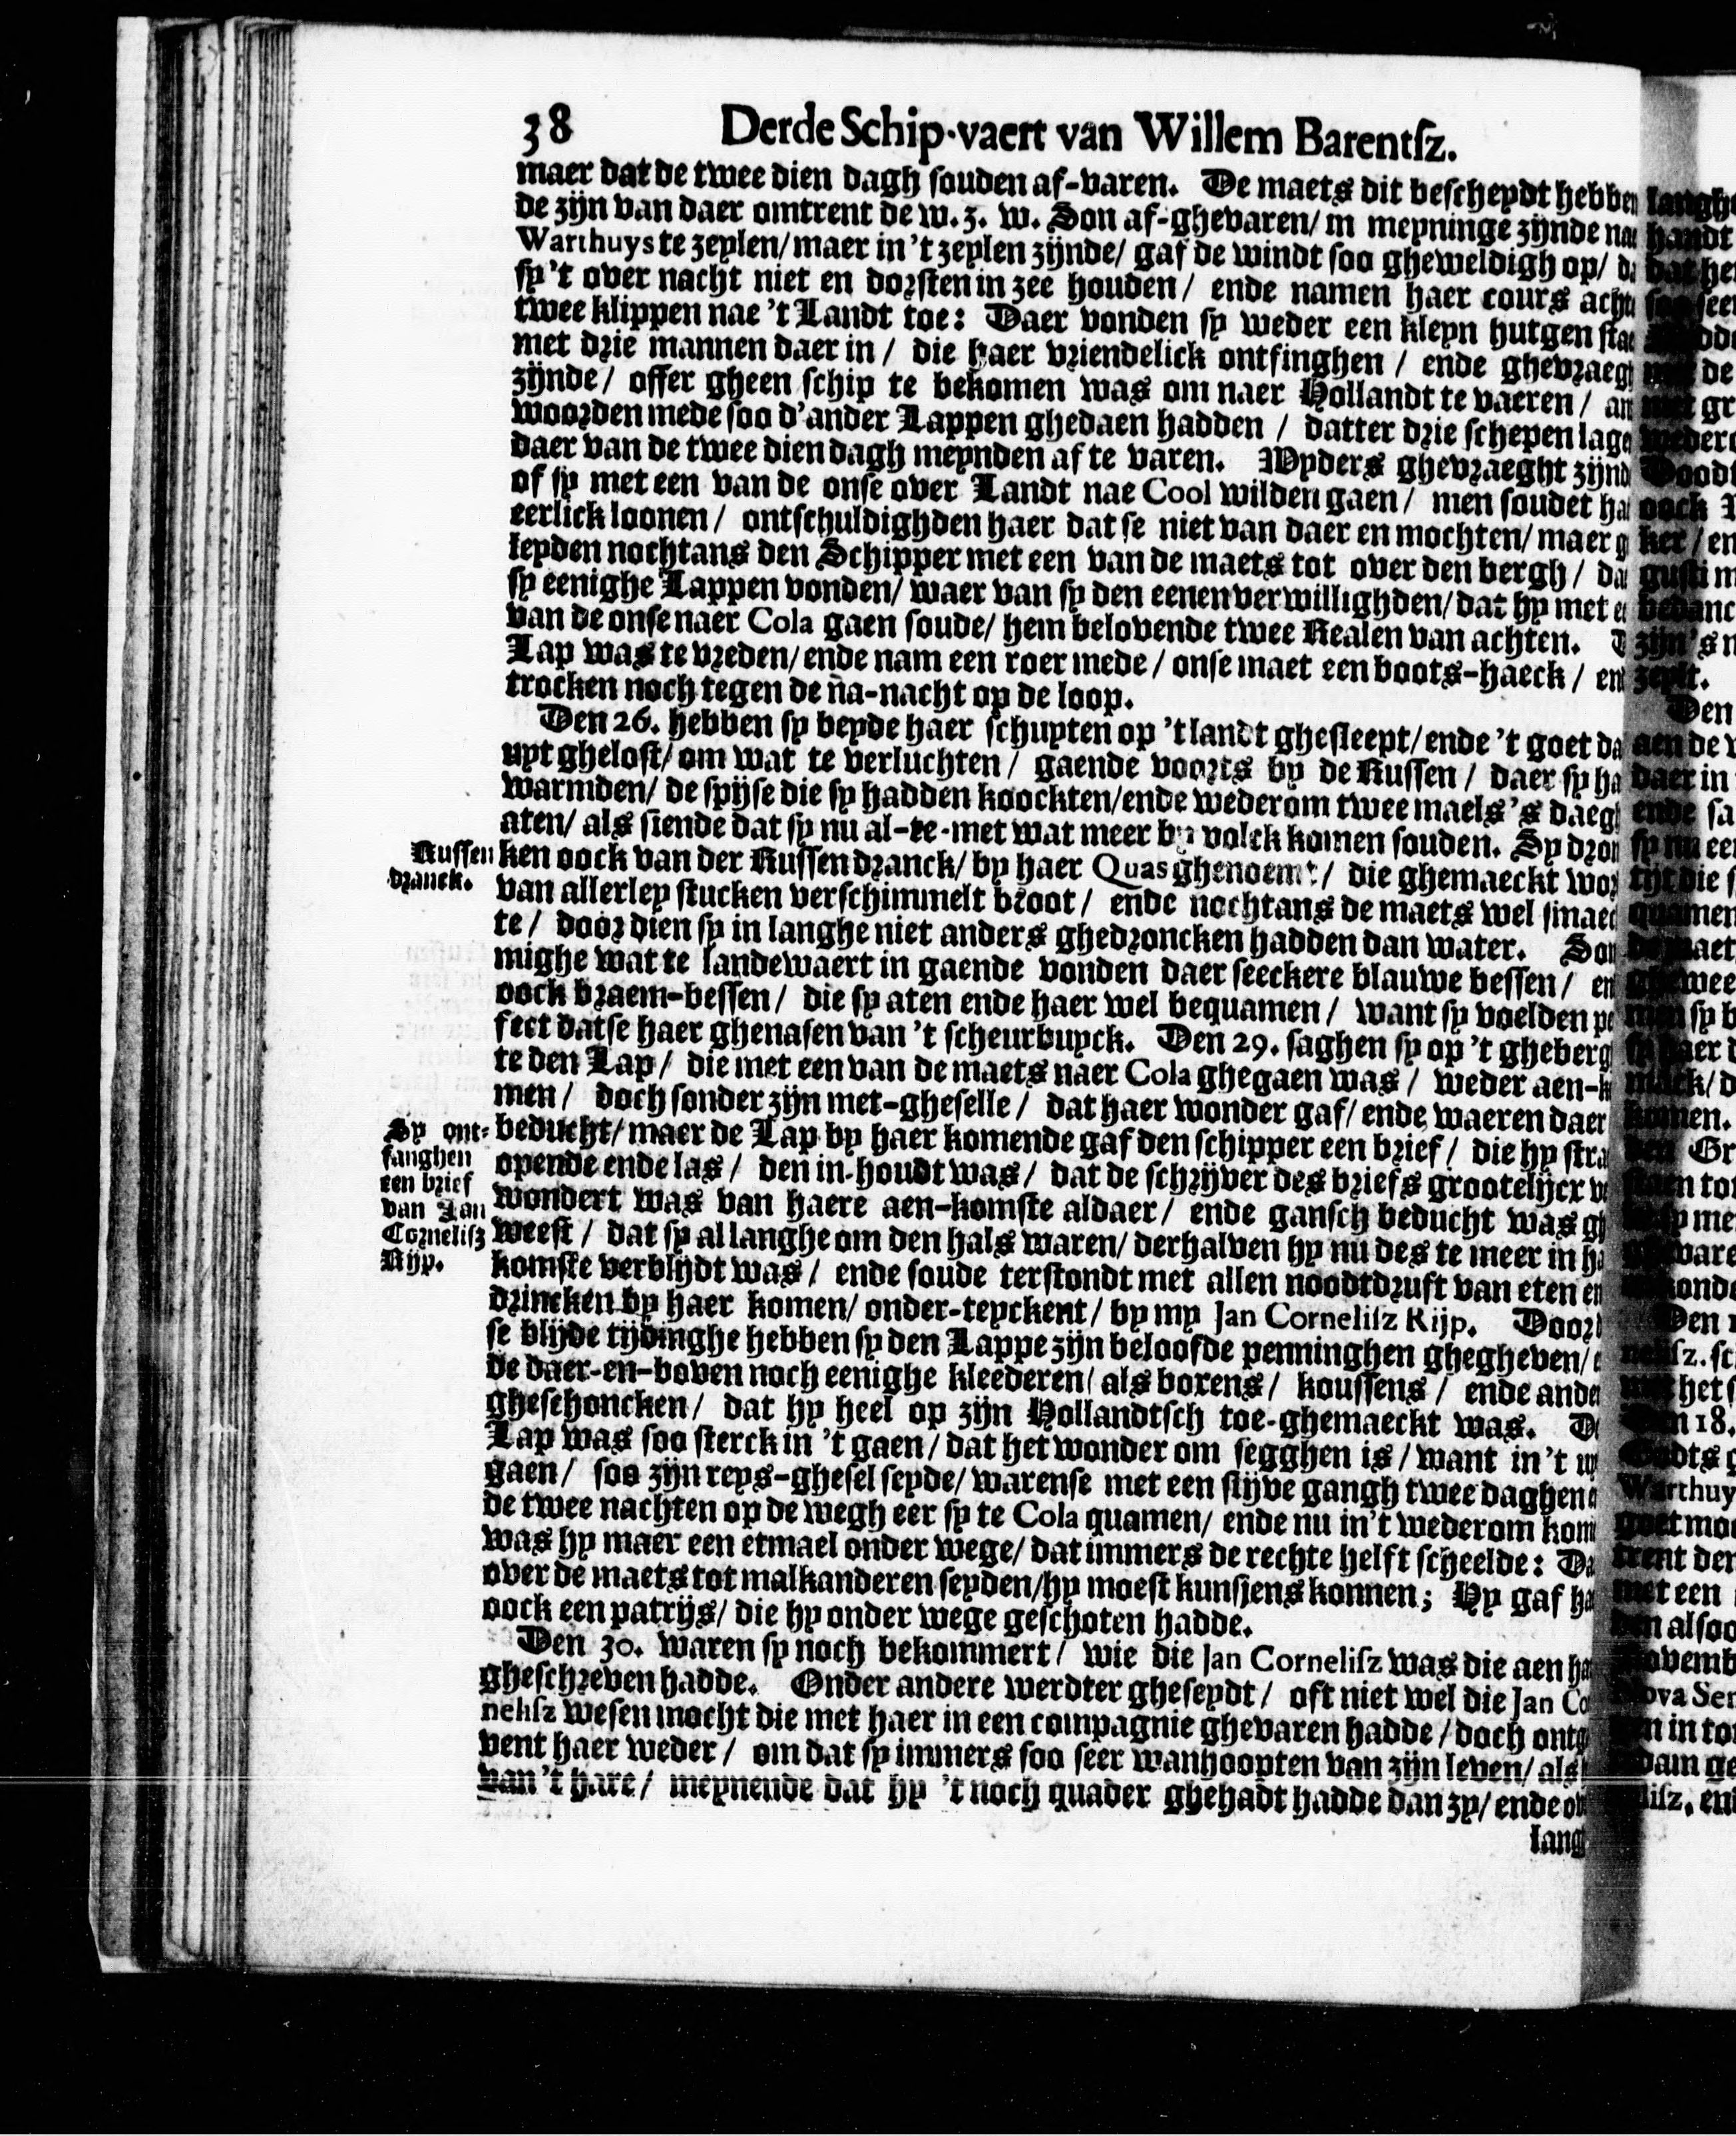 38 Derde Schip-vaert van Willem Barentsz.
maer dat de twee dien dagh souden af-varen. De maets dit bescheydt hebben
de zijn van daer omtrent de w. z. w. Son af-ghevaren/ in meyninge zijnde na
Warthuys te zeylen/ maer in 't zeylen zijnde/ gaf de windt soo gheweldigh op/ d
sy 't over nacht niet en dorsten in zee houden/ ende namen haer cours acht
twee klippen nae 't Landt toe: Daer vonden sy weder een kleyn hutgen sta
met drie mannen daer in/ die haer vriendelick ontfinghen/ ende ghevraeg
zijnde/ offer gheen schip te bekomen was om naer Hollandt te vaeren/ an
woorden mede soo d'ander Lappen ghedaen hadden/ datter drie schepen lage
daer van de twee dien dagh meynden af te varen. Wyders ghevraeght zijnd
of sy met een van de onse over Landt nae Cool wilden gaen/ men soudet ha
eerlick loonen/ ontschuldighden haer dat se niet van daer en mochten/ maer g
leyden nochtans den Schipper met een van de maets tot over den bergh/ da
sy eenighe Lappen vonden/ waer van sy den eenen verwillighden/ dat hy met e
van de onse naer Cola gaen soude/ hem belovende twee Realen van achten. D
Lap was te vreden/ ende nam een roer mede/ onse maet een boots-haeck/ en
trocken noch tegen de na-nacht op de loop.
Den 26. hebben sy beyde haer schuyten op 't landt ghesleept/ ende 't goet da
uyt ghelost/ om wat te verluchten/ gaende voorts by de Russen/ daer sy ha
warmden/ de spijse die sy hadden koockten/ ende wederom twee maels 's daegh
aten/ als siende dat sy nu al-te-met wat meer by volck komen souden. Sy dron
ken oock van der Russen dranck/ by haer Quas ghenoemt/ die ghemaeckt wor
Russen
dranck.
van allerley stucken verschimmelt broot/ ende nochtans de maets wel smaec
te/ door dien sy in langhe niet anders ghedroncken hadden dan water. Som
mighe wat te landewaert in gaende vonden daer seeckere blauwe bessen/ en
oock braem-bessen/ die sy aten ende haer wel bequamen/ want sy voelden pe
fect datse haer ghenasen van 't scheurbuyck. Den 29. saghen sy op 't gheberg
te den Lap/ die met een van de maets naer Cola ghegaen was/ weder aen-k
men/ doch sonder zijn met-gheselle/ dat haer wonder gaf/ ende waeren daer
beducht/ maer de Lap by haer komende gaf den schipper een brief/ die hy stra
Sy ont-
fanghen
een brief
van Jan
Cornelisz
Rijp.
opende ende las/ den in-houdt was/ dat de schrijver des briefs grootelijcx v
wondert was van haere aen-komste aldaer/ ende gansch beducht was gh
weest/ dat sy al langhe om den hals waren/ derhalven hy nu des te meer in ha
komste verblijdt was/ ende soude terstondt met allen noodtdruft van eten en
drincken by haer komen/ onder-teyckent/ by my Jan Cornelisz Rijp. Door
se blijde tijdinghe hebben sy den Lappe zijn beloofde penninghen ghegheven/
de daer-en-boven noch eenighe kleederen/ als boxens/ koussens/ ende ande
gheschoncken/ dat hy heel op zijn Hollandtsch toe-ghemaeckt was. D
Lap was soo sterck in 't gaen/ dat het wonder om segghen is/ want in 't uy
gaen/ soo zijn reys-ghesel seyde/ warense met een stijve gangh twee daghen
de twee nachten op de wegh eer sy te Cola quamen/ ende nu in 't wederom kom
was hy maer een etmael onder wege/ dat immers de rechte helft scheelde: Da
over de maets tot malkanderen seyden/ hy moest kunsjens konnen; Hy gaf ha
oock een patrijs/ die hy onder wege geschoten hadde.
Den 30. waren sy noch bekommert/ wie die Jan Cornelisz was die aen ha
gheschreven hadde. Onder andere werdter gheseydt/ oft niet wel die Jan Co
nelisz wesen mocht die met haer in een compagnie ghevaren hadde/ doch ontg
vent haer weder/ om dat sy immers soo seer wanhoopten van zijn leven/ als
van 't hare/ meynende dat hy 't noch quader ghehadt hadde dan zy/ ende ov
lang